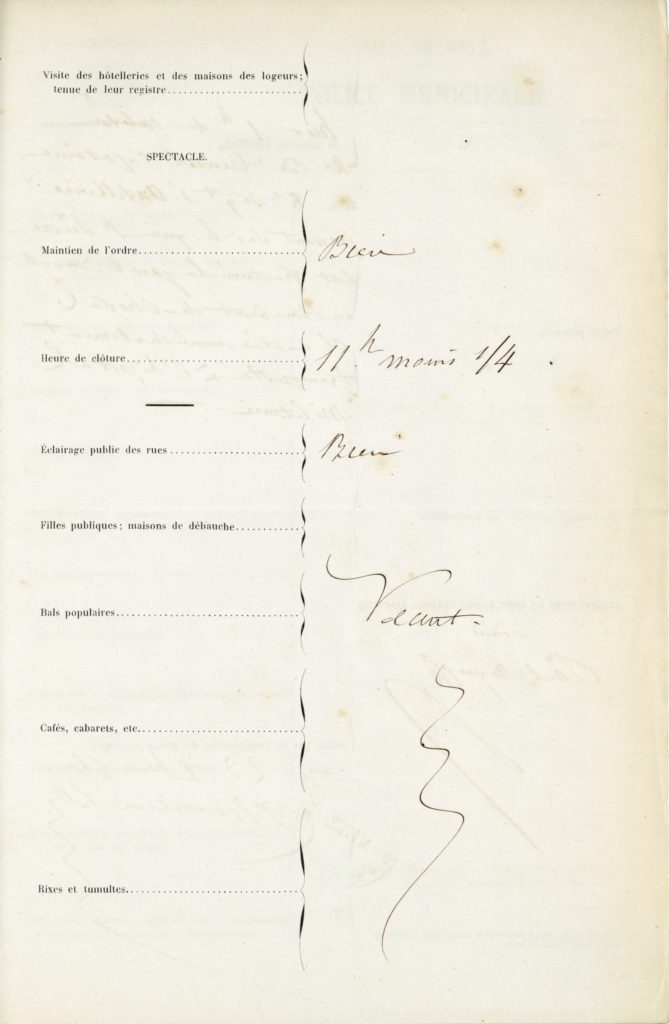 Visite des hôtelleries et des maisons des logeurs;
tenue de leur registre........................
SPECTACLE.
Maintien de l'ordre........................... Bien
Heure de clôture............................. 11h moins 1/4.
Éclairage public des rues...................... Bien
Filles publiques; maisons de débauche...........
Bals populaires............................... Néant
Cafés, cabarets, etc...........................
Rixes et tumultes.............................